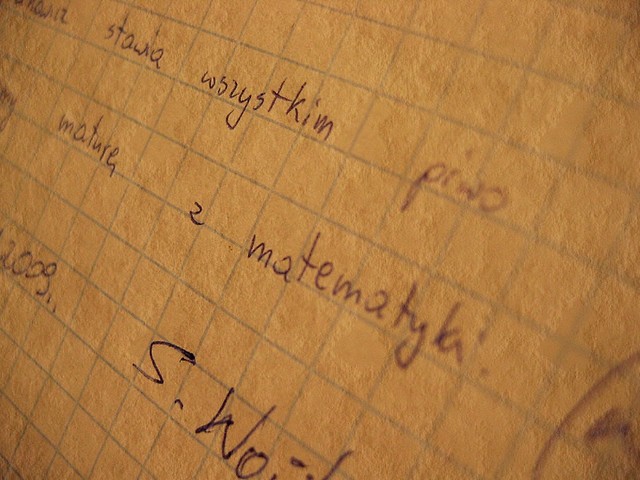 stawia wszystkim piwo
maturę z matematyki!
2009r.
S. Woj